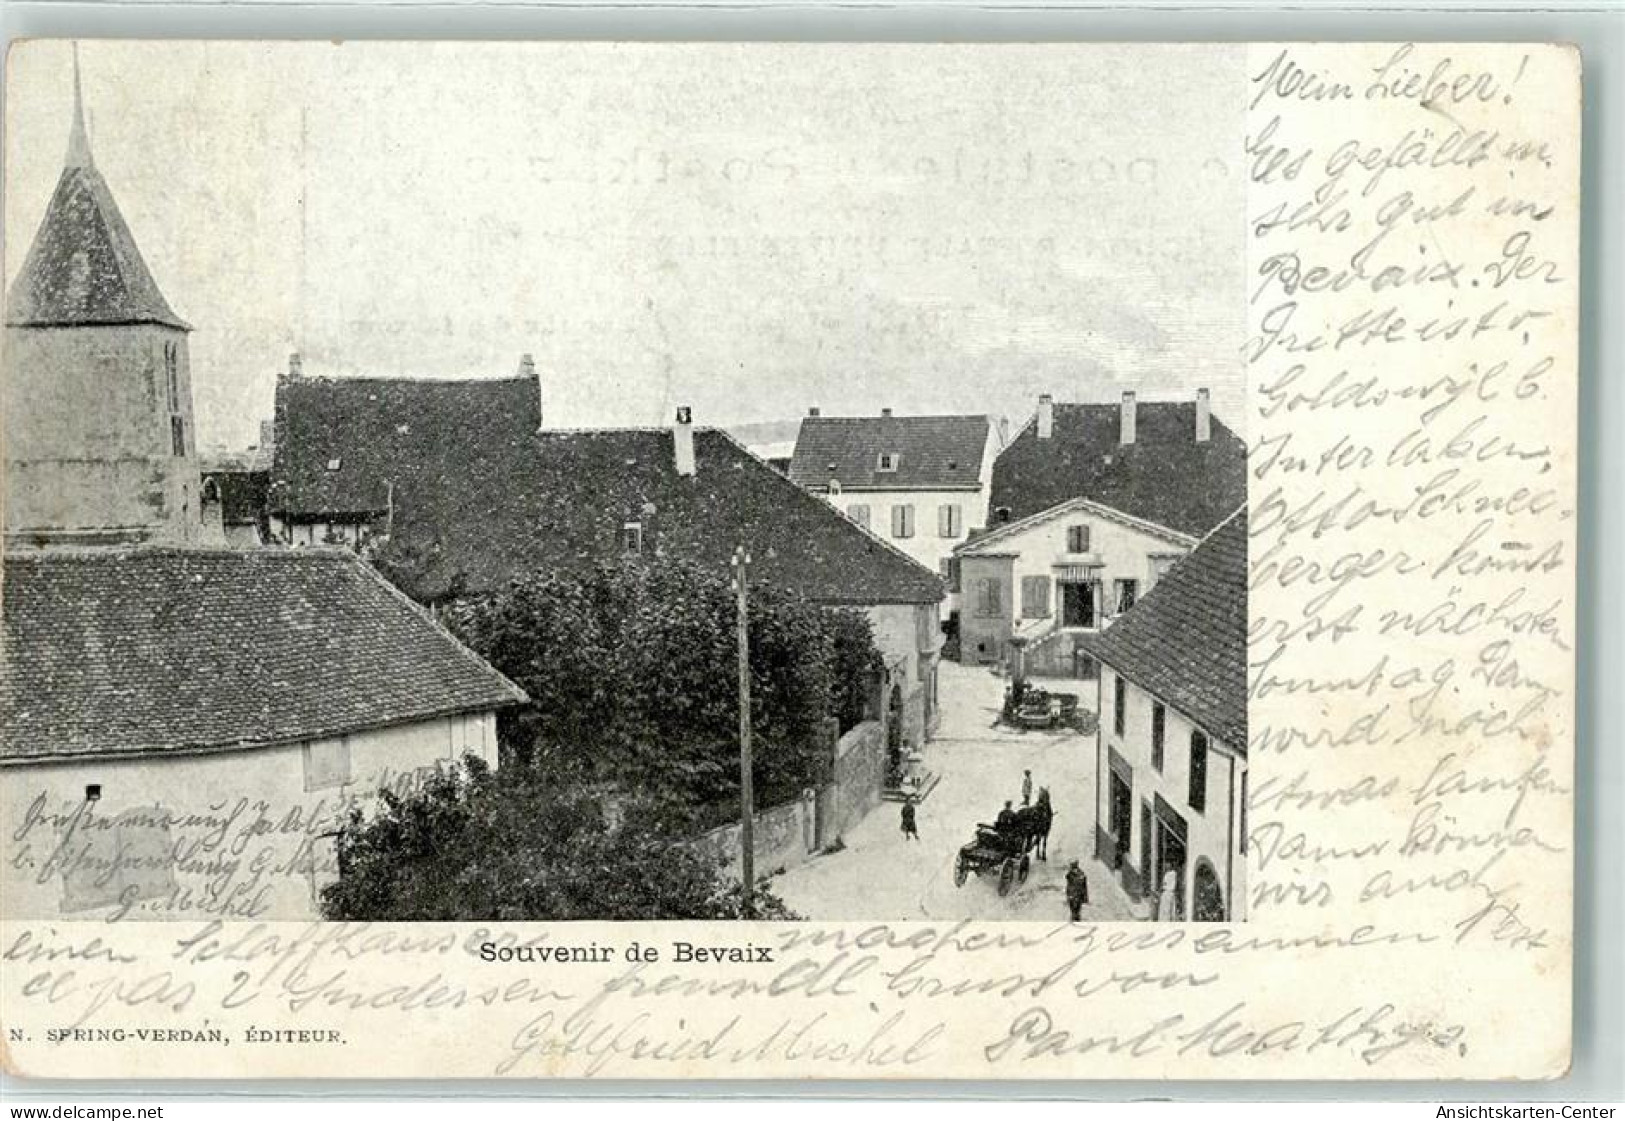 Mein Lieber!
Es gefällt m.
sehr gut in
Bevaix. Der
Dritte ist v.
Goldswyl b.
Interlaken,
Otto Schnee-
berger kom̄t
erst nächsten
Sonntag. Dan
wird noch
etwas laufen
Dann können
wir auch
einen Schaffhauser machen zusammen
2 Indessen freundl Gruss von
Gottfried Michel Paul Mathys.
Grüße mir auch Jakob
b. Eisenhandlung G.
G. Michel
Souvenir de Bevaix
N. SPRING-VERDAN, ÉDITEUR.
delcampe.net
Ansichtskarten-Center